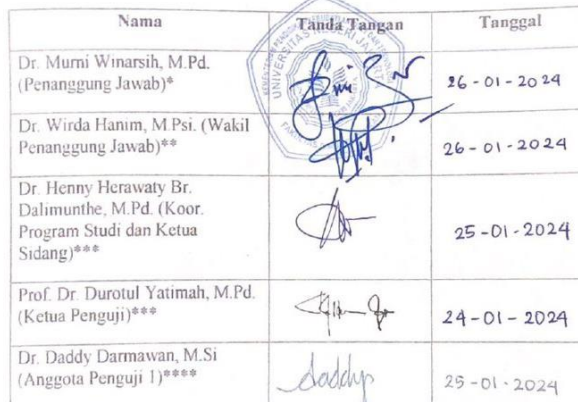 Nama Tanda Tangan Tanggal
Dr. Murni Winarsih, M.Pd.
(Penanggung Jawab)*
26-01-2024
Dr. Wirda Hanim, M.Psi. (Wakil
Penanggung Jawab)**
26-01-2024
Dr. Henny Herawaty Br.
Dalimunthe, M.Pd. (Koor.
Program Studi dan Ketua
Sidang)***
25-01-2024
Prof. Dr. Durotul Yatimah, M.Pd.
(Ketua Penguji)***
24-01-2024
Dr. Daddy Darmawan, M.Si
(Anggota Penguji 1)****
daddy
25-01-2024
UNIVERSITAS NEGERI JAKARTA